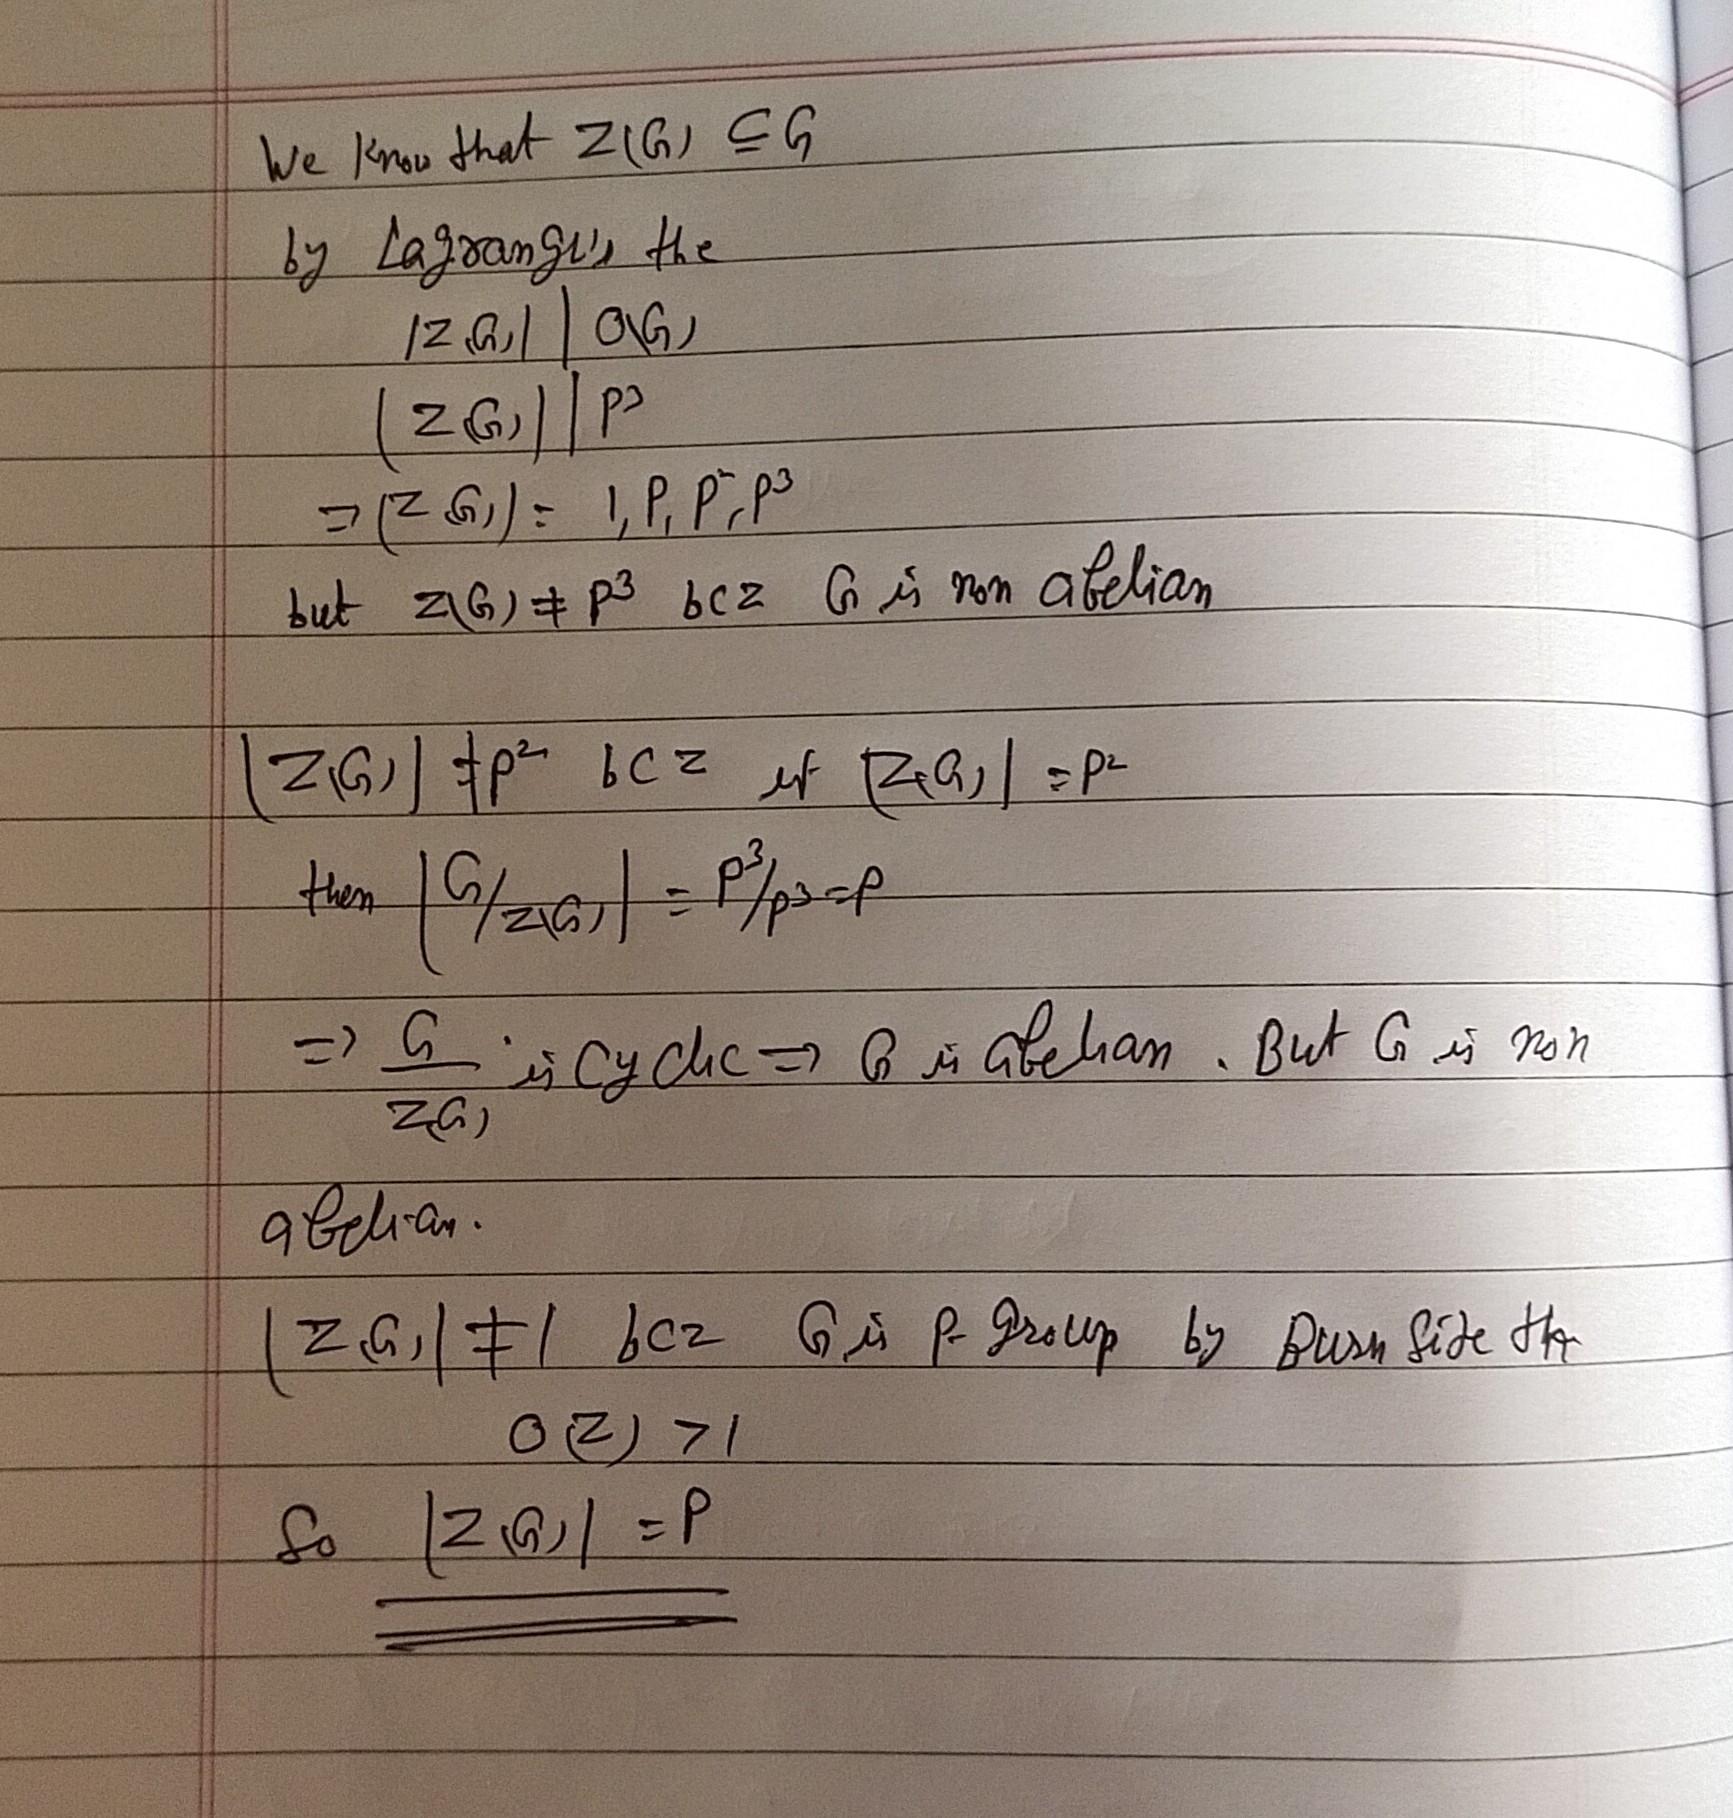 We know that Z(G) ⊆ G
by Lagrange's the
|Z(G)| | O(G)
|Z(G)| | P³
⇒ |Z(G)| = 1, P, P², P³
but Z(G) ≠ P³ bcz G is non abelian
|Z(G)| ≠ P² bcz if |Z(G)| = P²
then |G/Z(G)| = P³/P³ = P
⇒ G/Z(G) is Cyclic ⇒ G is abelian. But G is non
abelian.
|Z(G)| ≠ 1 bcz G is P-group by Burn Side th
O(Z) > 1
So |Z(G)| = P